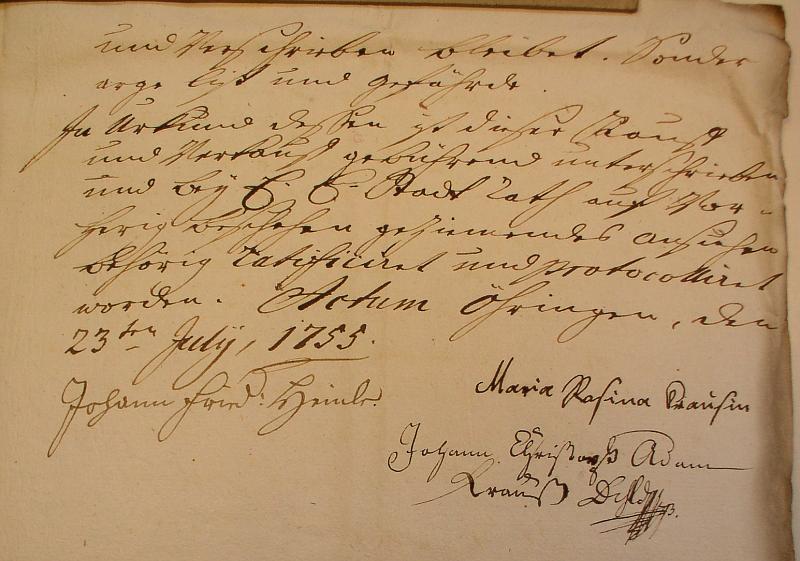 und Verschrieben bleibet. Sonder
arge list und Gefährde.
In Urkund dessen ist dieser Kauf
und Verkauf gebührend unterschrieben
und bey E. E. Stadt Rath auf Vor-
herig beschehen geziemendes Ansuchen
behörig ratificiret und protocolliret
worden. Actum Öhringen, den
23ten July, 1755.
Johann Fried: Heinle.
Maria Rosina Krausin
Johann Christoph Adam
Krauß